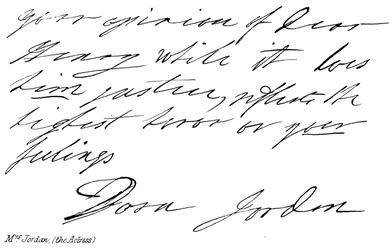 your opinion of Dear
Henry while it does
him justice, reflects the
highest honor on your
feelings
Dora Jordan
Mrs Jordan, (the Actress)